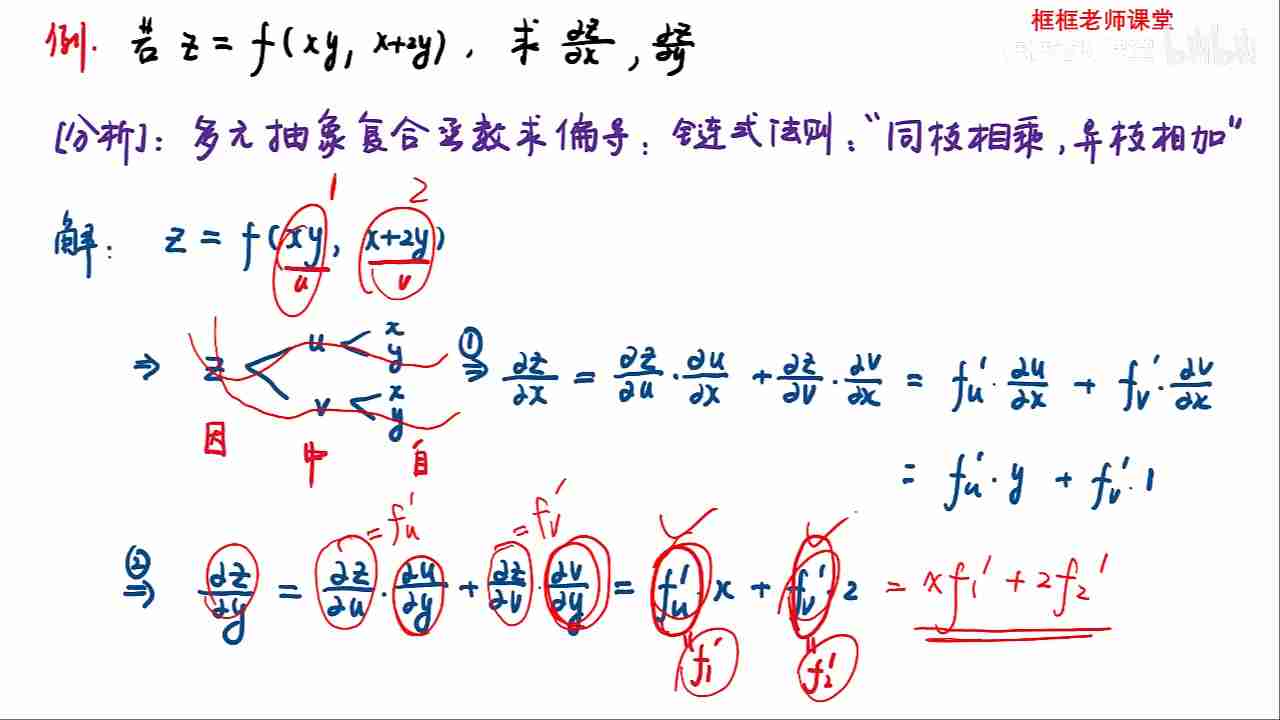 框框老师课堂
例. 若 z = f(xy, x+2y), 求 ∂z/∂x, ∂z/∂y
[分析]: 多元抽象复合函数求偏导: 链式法则: “同枝相乘, 异枝相加”
1 2
解: z = f(xy, x+2y)
u v
⇒ z u x y v x y ① ⇒ ∂z/∂x = ∂z/∂u · ∂u/∂x + ∂z/∂v · ∂v/∂x = fu′ · ∂u/∂x + fv′ · ∂v/∂x
因 中 自
= fu′ · y + fv′ · 1
= fu′ = fv′
② ⇒ ∂z/∂y = ∂z/∂u · ∂u/∂y + ∂z/∂v · ∂v/∂y = fu′ · x + fv′ · 2 = xf1′ + 2f2′
= f1′ = f2′